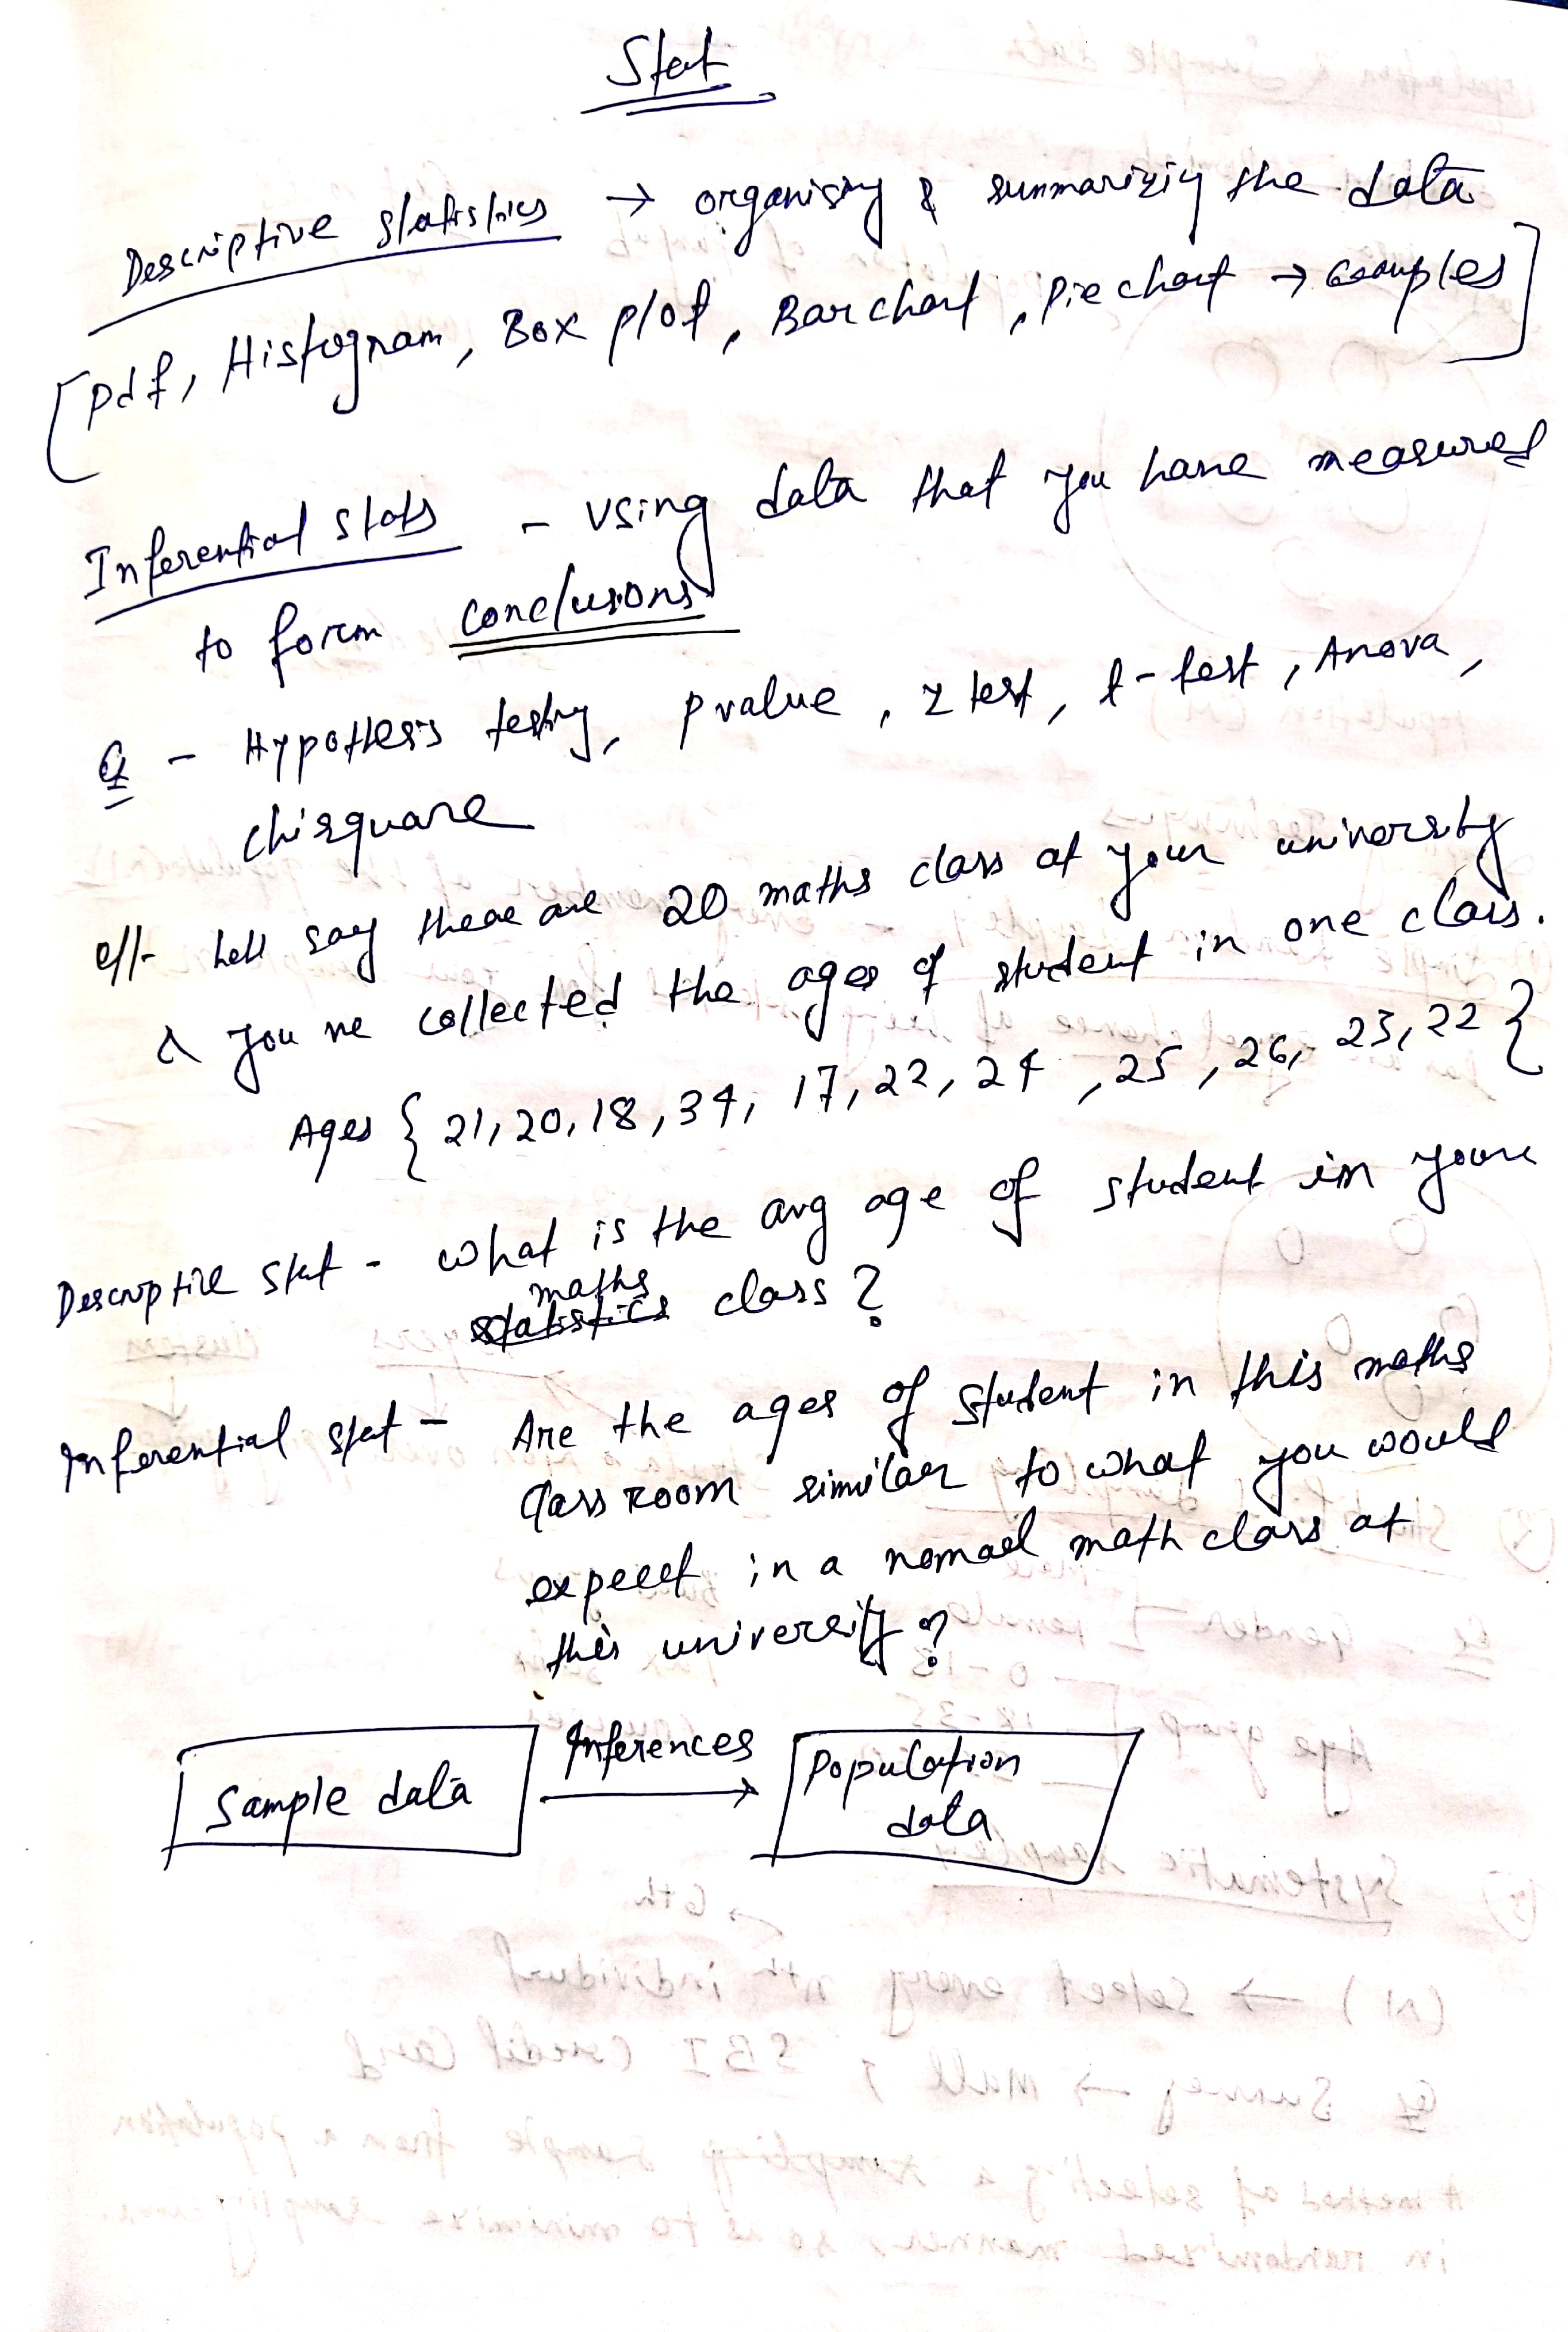 Stat
Descriptive statistics → organising & summarizing the data
[pdf, Histogram, Box plot, Barchart, Pie chart → Examples]
Inferential stats - Using data that you have measured
to form conclusions
Eg - Hypothesis testing, p value, z test, t-test, Anova,
chisquare
let say there are 20 maths class at your university
& you ve collected the ages of student in one class.
Ages { 21, 20, 18, 34, 17, 22, 24, 25, 26, 23, 22 }
Descriptive Stat - what is the avg age of student in your
maths
statistics class?
Inferential stat - Are the ages of student in this maths
Class room similar to what you would
expect in a normal math class at
this university?
Inferences
Sample data → Population
data